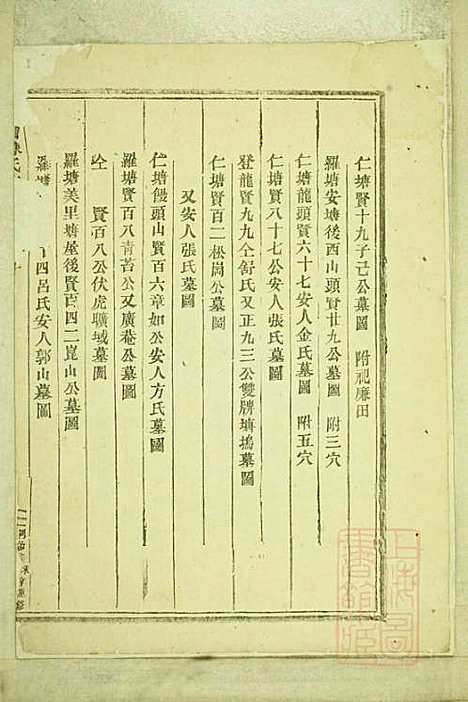 仁塘賢十九子己公墓圖 附祀廉田
羅塘安塘後西山頭賢廿九公墓圖 附三穴
仁塘龍頭賢六十七安人金氏墓圖 附五穴
仁塘賢八十七公安人張氏墓圖
登龍賢九九仝舒氏又正九三公雙牌塡塢墓圖
仁塘賢百二松崗公墓圖
又安人張氏墓圖
仁塘饅頭山賢百六章如公安人方氏墓圖
羅塘賢百八靑苔公又廣菴公墓圖
仝 賢百八公伏虎壙域墓圖
羅塘美里塘屋後賢百四二崑山公墓圖
羅塘 四呂氏安人郭山墓圖